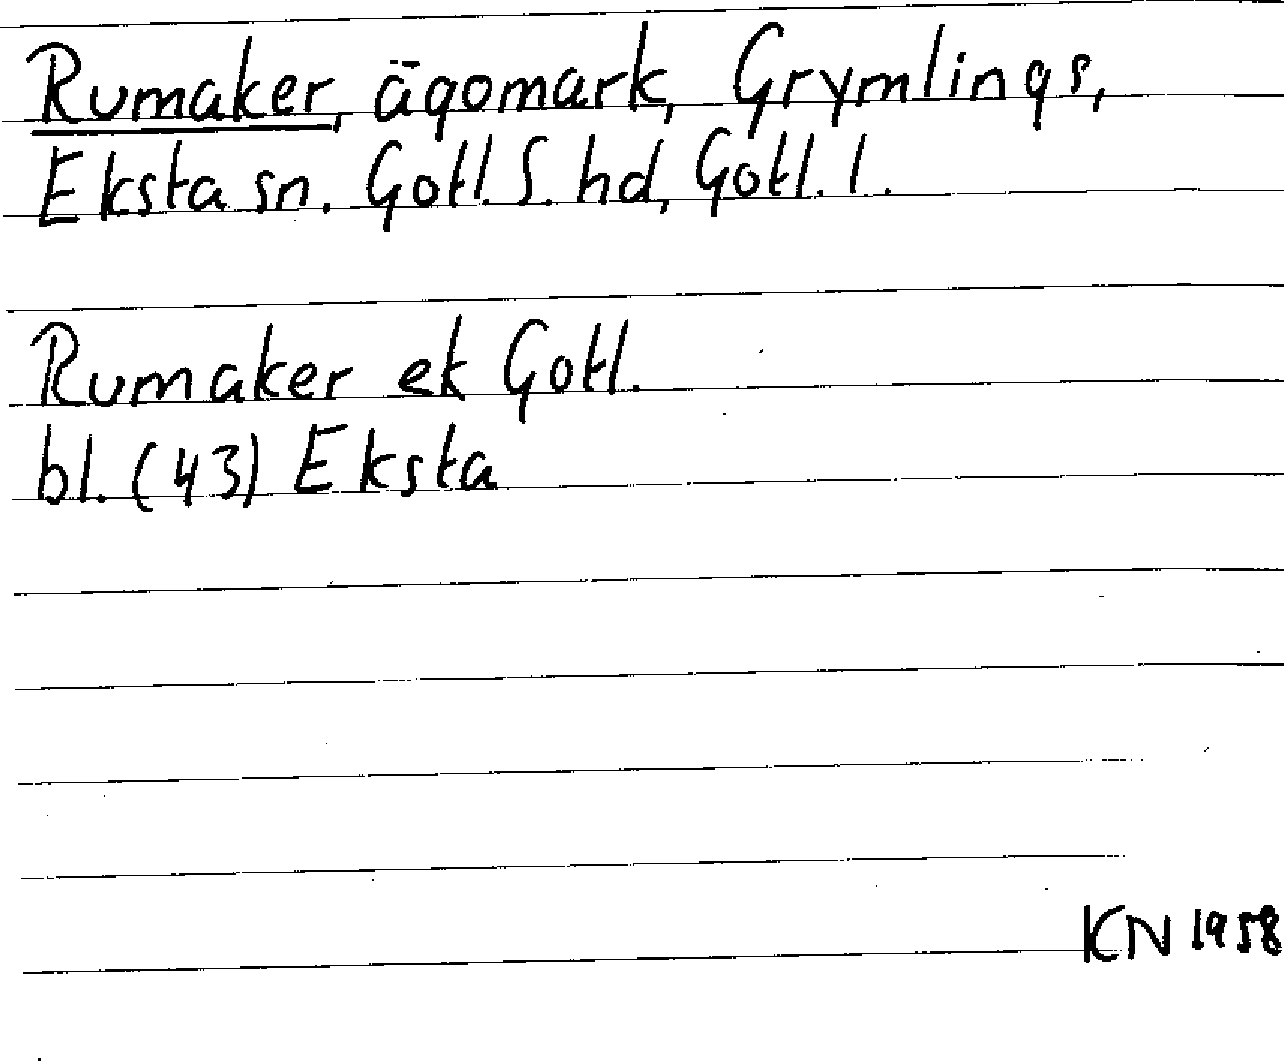 Rumaker, ägomark, Grymlings,
Eksta sn. Gotl. S. hd, Gotl. l.
Rumaker ek Gotl.
bl. (43) Eksta
KN 1958